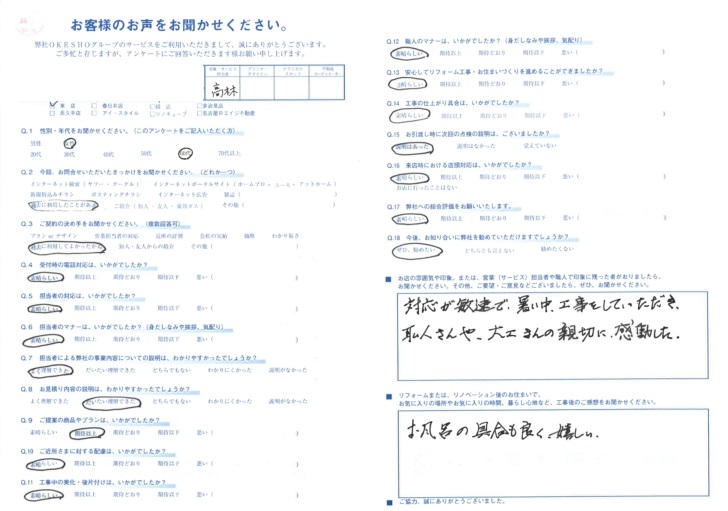 お客様のお声をお聞かせください。
弊社OKESHOグループのサービスをご利用いただきまして、誠にありがとうございます。
ご多忙と存じますが、アンケートにご回答いただきます様お願い申し上げます。
高林
東店 春日井店 緑店 多治見店
長久手店 アイ・スタイル リノキューブ 名古屋ロエイジ不動産
Q.1 性別・年代をお聞かせください。(このアンケートをご記入いただく方)
男性 女性
20代 30代 40代 50代 60代 70代以上
Q.2 今回、お問合せいただいたきっかけをお聞かせください。(どれか一つ)
インターネット検索(ヤフー・グーグル) インターネットポータルサイト(ホームプロ・
新聞折込みチラシ ポスティングチラシ インターネット広告 雑誌( )
過去に利用したことがある ご紹介(知人・友人・東邦ガス) その他( )
Q.3 ご契約の決め手をお聞かせください。(複数回答可)
プラン or デザイン 営業担当者の対応 近所の評判 会社の実績 価格 わかり易さ
過去に利用してよかったから 知人・友人からの紹介 その他( )
Q.4 受付時の電話対応は、いかがでしたか?
素晴らしい 期待以上 期待どおり 期待以下 悪い( )
Q.5 担当者の対応は、いかがでしたか?
素晴らしい 期待以上 期待どおり 期待以下 悪い( )
Q.6 担当者のマナーは、いかがでしたか?(身だしなみや挨拶、気配り)
素晴らしい 期待以上 期待どおり 期待以下 悪い( )
Q.7 担当者による弊社の事業内容についての説明は、わかりやすかったでしょうか?
よく理解できた だいたい理解できた どちらでもない わかりにくかった 説明がなかった
Q.8 お見積り内容の説明は、わかりやすかったでしょうか?
よく理解できた だいたい理解できた どちらでもない わかりにくかった 説明がなかった
Q.9 ご提案の商品やプランは、いかがでしたか?
素晴らしい 期待以上 期待どおり 期待以下 悪い( )
Q.10 ご近所さまに対する配慮は、いかがでしたか?
素晴らしい 期待以上 期待どおり 期待以下 悪い( )
Q.11 工事中の美化・後片付けは、いかがでしたか?
素晴らしい 期待以上 期待どおり 期待以下 悪い( )
Q.12 職人のマナーは、いかがでしたか?(身だしなみや挨拶、気配り)
素晴らしい 期待以上 期待どおり 期待以下 悪い( )
Q.13 安心してリフォーム工事・お住まいづくりを進めることができましたか?
素晴らしい 期待以上 期待どおり 期待以下 悪い( )
Q.14 工事の仕上がり具合は、いかがでしたか?
素晴らしい 期待以上 期待どおり 期待以下 悪い( )
Q.15 お引渡し時に次回の点検の説明は、ございましたか?
説明はあった 説明はなかった 覚えていない
Q.16 来店時における店頭対応は、いかがでしたか?
素晴らしい 期待以上 期待どおり 期待以下 悪い( )
お店に行ったことはない
Q.17 弊社への総合評価をお願いいたします。
素晴らしい 期待以上 期待どおり 期待以下 悪い( )
Q.18 今後、お知り合いに弊社を勧めていただけますでしょうか?
ぜひ、勧めたい どちらとも言えない 勧めたくない
■ お店の雰囲気や印象。または、営業(サービス)担当者や職人で印象に残った者がおりましたら、
お聞かせください。その他、ご要望・ご意見などございましたら、ぜひ、お聞かせください。
対応が敏速で、暑い中、工事をしていただき、
職人さんや、大工さんの親切に、感動した。
■ リフォームまたは、リノベーション後のお住まいで、
お気に入りの場所やお気に入りの時間、暮らし心地など、工事後のご感想をお聞かせください。
お風呂の具合も良く、嬉しい。
■ ご協力、誠にありがとうございました。